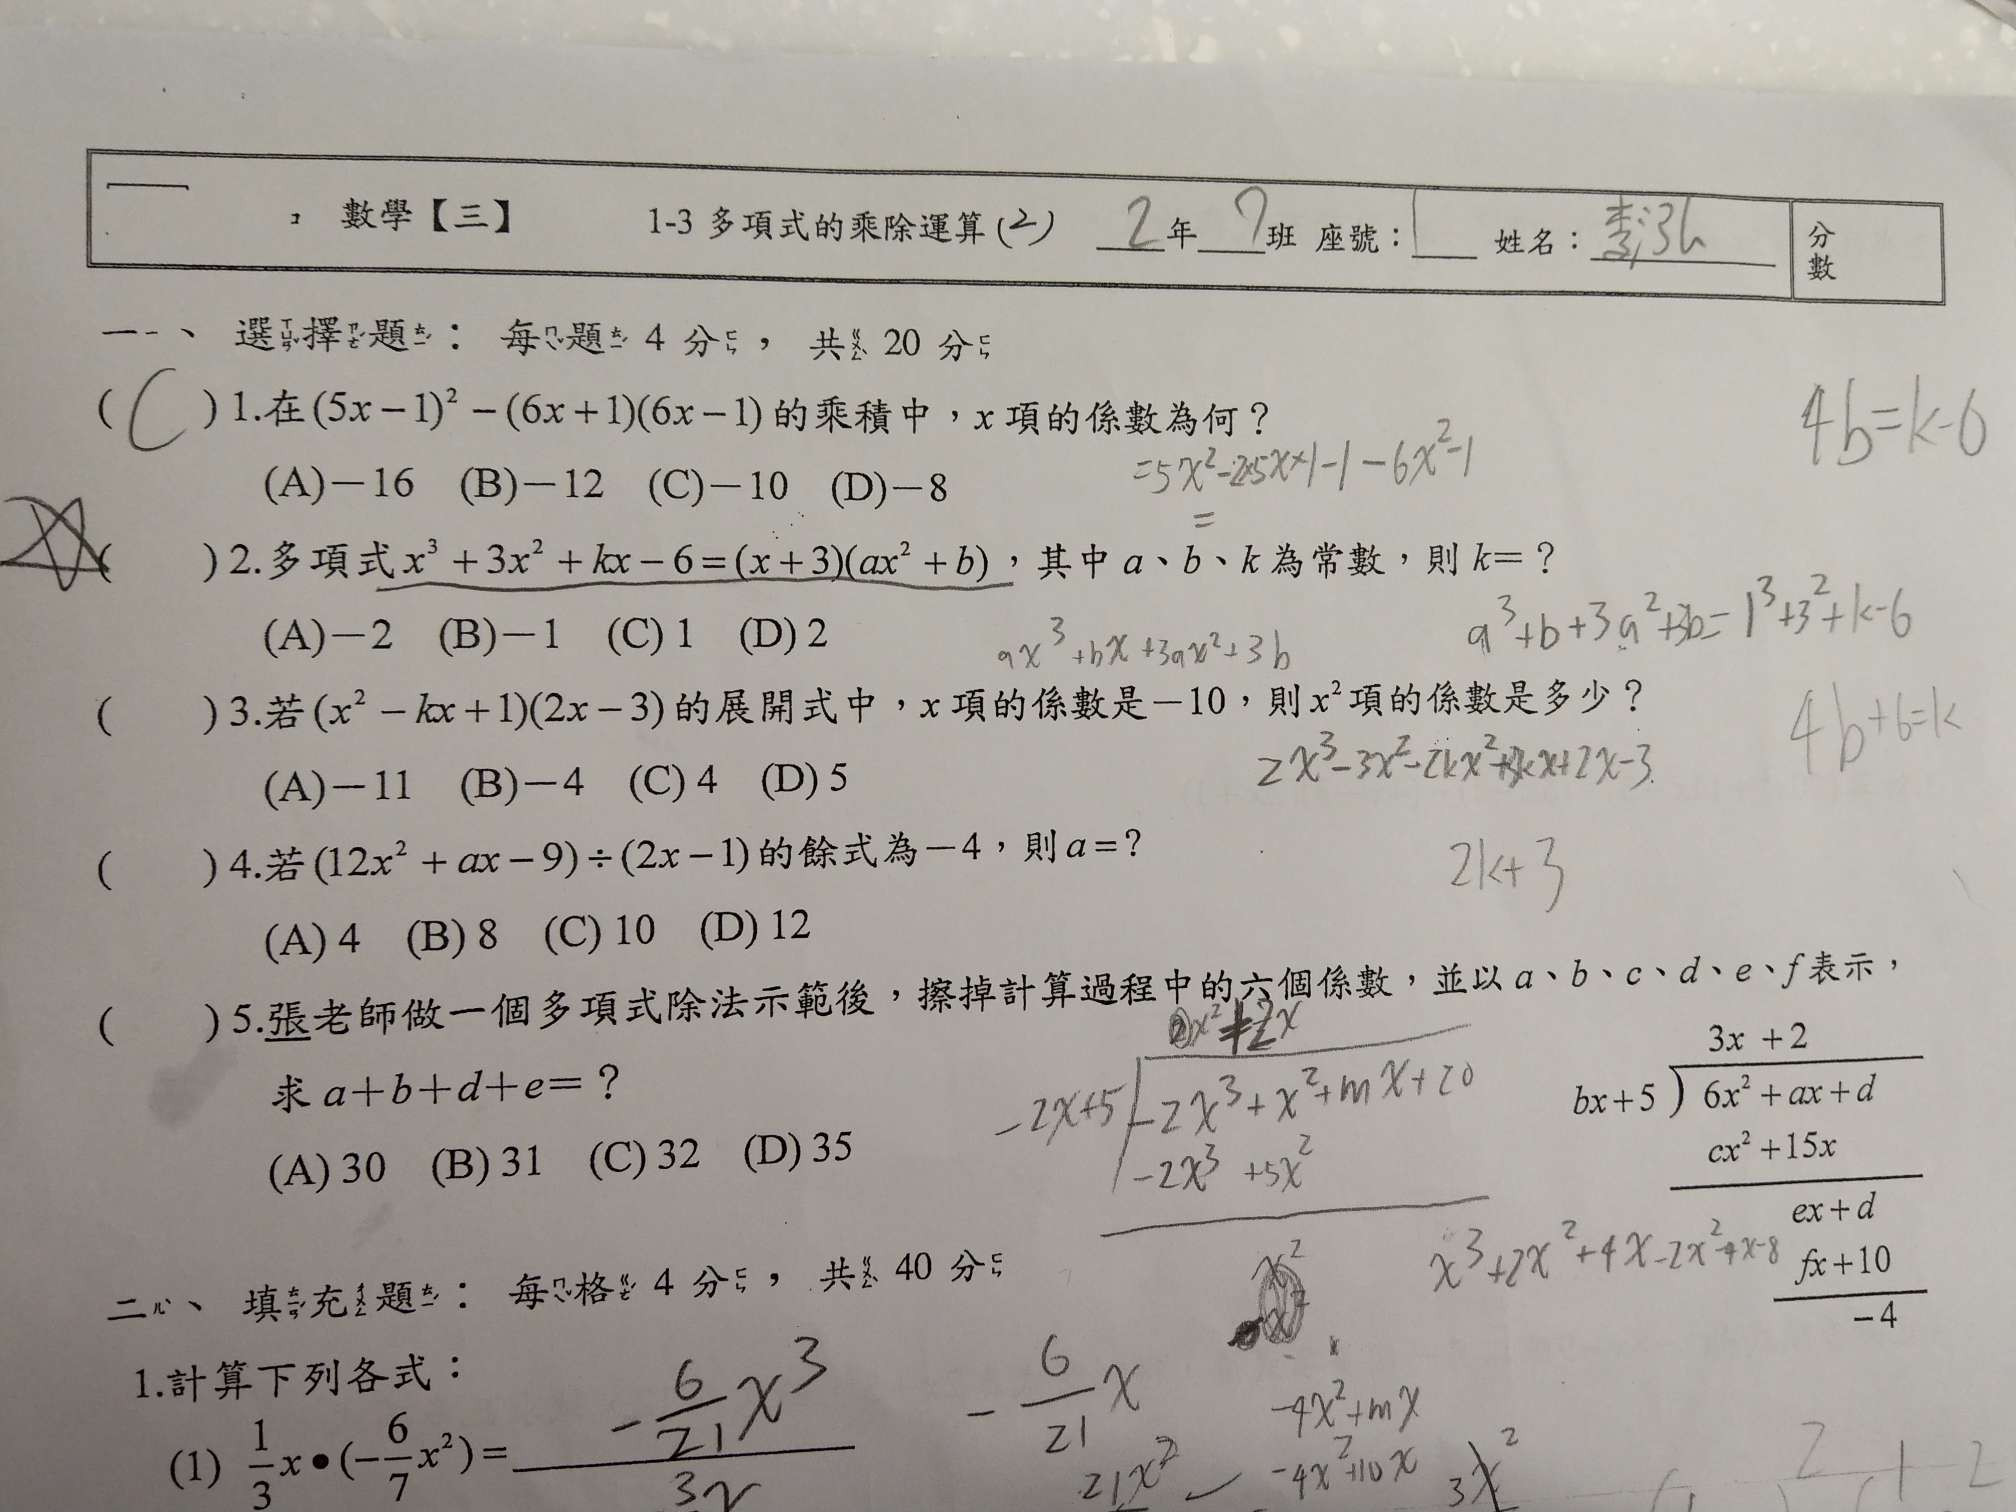 數學【三】 1-3 多項式的乘除運算(2) 2年7班 座號：1 姓名： 分數
一、選擇題：每題 4 分，共 20 分
( C )1.在(5x－1)²－(6x＋1)(6x－1)的乘積中，x 項的係數為何？
4b=k-6
(A)－16 (B)－12 (C)－10 (D)－8
=5x²-2×5x×1-1-6x²-1
=
( )2.多項式 x³＋3x²＋kx－6＝(x＋3)(ax²＋b)，其中 a、b、k 為常數，則 k＝？
(A)－2 (B)－1 (C) 1 (D) 2
ax³+bx+3ax²+3b
a³+b+3a²+3b=1³+3²+k-6
( )3.若(x²－kx＋1)(2x－3)的展開式中，x 項的係數是－10，則 x² 項的係數是多少？
4b+6=k
(A)－11 (B)－4 (C) 4 (D) 5
2x³-3x²-2kx²+3kx+2x-3
( )4.若(12x²＋ax－9)÷(2x－1)的餘式為－4，則 a＝？
2k+3
(A) 4 (B) 8 (C) 10 (D) 12
( )5.張老師做一個多項式除法示範後，擦掉計算過程中的六個係數，並以 a、b、c、d、e、f 表示，
求 a＋b＋d＋e＝？
(A) 30 (B) 31 (C) 32 (D) 35
-2x+5
-2x³+x²+mx+20
-2x³ +5x²
3x ＋2
bx＋5 ) 6x²＋ax＋d
cx²＋15x
ex＋d
fx＋10
－4
x³+2x²+4x-2x²-4x-8
x²
二、填充題：每格 4 分，共 40 分
1.計算下列各式：
(1) 1/3 x•(－6/7 x²)＝ -6/21 x³
-6/21 x
-4x²+mx
21x²
-4x²+10x